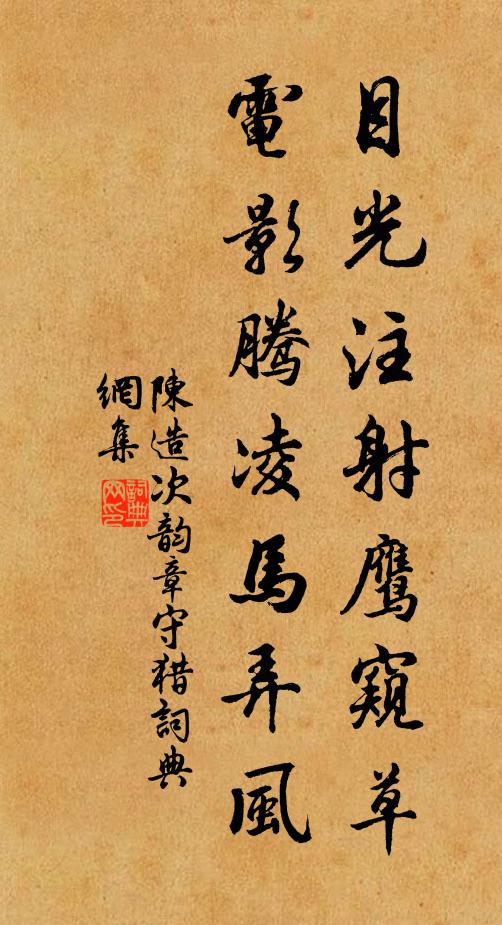 目光注射鹰窥草
電影腾凌馬弄風
陳造次韵章守猎詞典
網集
詞典
网印